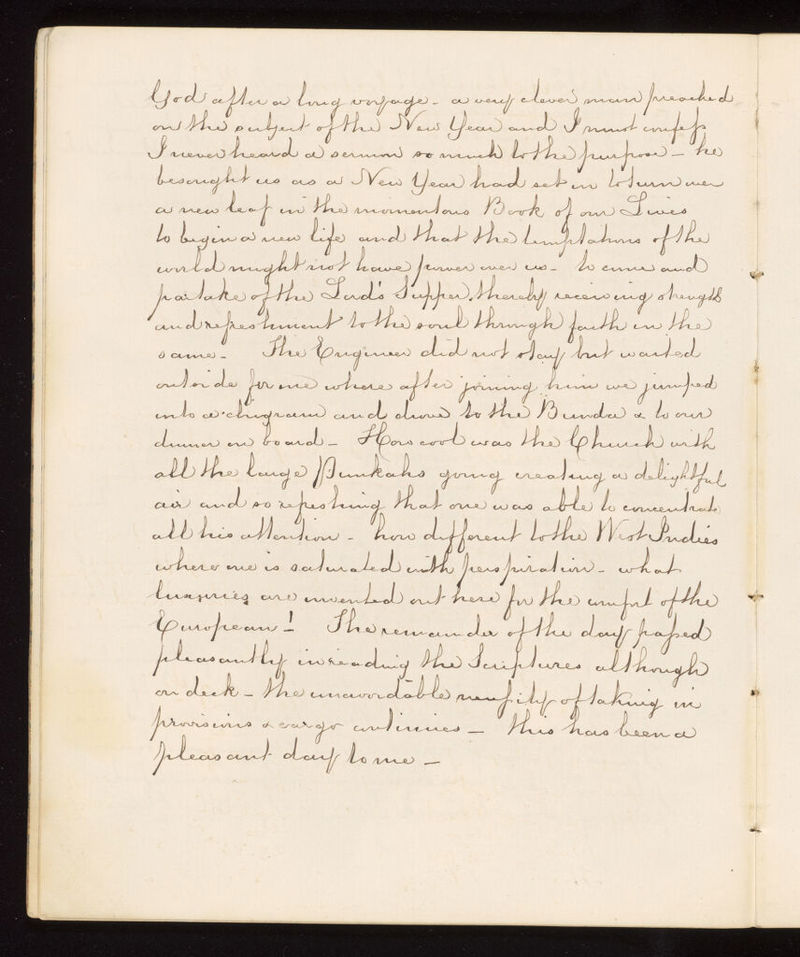 God after a long voyage - a very clever man preached
on the subject of the New Year and I must confess
I never heard a sermon so much to the purpose - he
besought us as a New Year had set in to turn over
a new leaf in the momentous Book of our Lives
to begin a new life and that the temptations of the
world might not have power over us - to come and
partake of the Lord's Supper, thereby receiving strength
and refreshment to the soul through faith in the
same - The Engineer did not stay but waited
outside for me where after joining him we jumped
into a chigram and drove to the Bunda & to our
dinner on board - How cool was the Church with
all the large Punkahs going creating a delightful
air and so refreshing that one was able to concentrate
all his attention - how different to the West Indies
where one is saturated with perspiration - what
luxuries are invented out here for the comfort of the
European! The remainder of the day passed
pleasantly in reading the Scriptures although
on deck - the unavoidable necessity of taking in
provisions & cargo continues - this has been a
pleasant day to me -